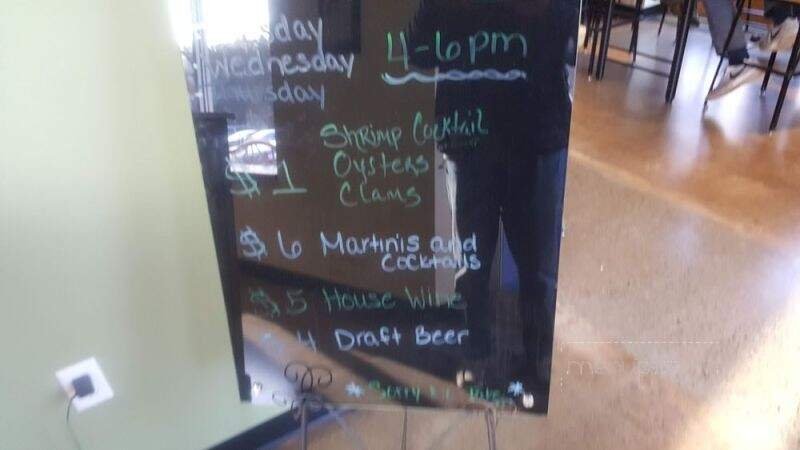 Wednesday
4-6pm
Shrimp Cocktail
$1 Oysters
Clams
$6 Martinis and
Cocktails
$5 House Wine
4 Draft Beer